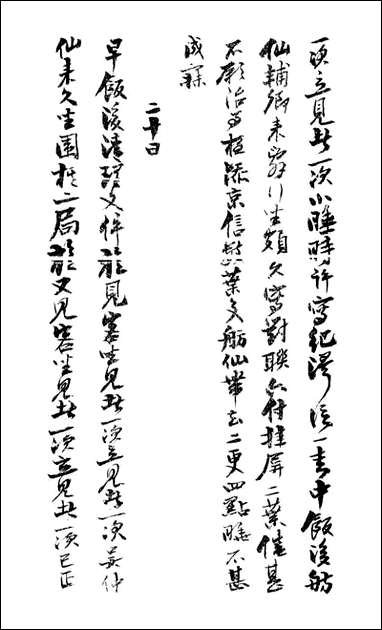 一次立見者一次小睡時許寫紀澤信一書中飯後舫
仙輔卿來辭行坐頗久寫對聯六付挂屏二葉倦甚
不願治事核添京信與葉文舫仙帶去二更四點睡不甚
成寐
二十日
早飯後清理文件旋見客坐見者一次立見者一次吳竹
仙來久坐圍棋二局旋又見客坐見者一次立見者一次巳正